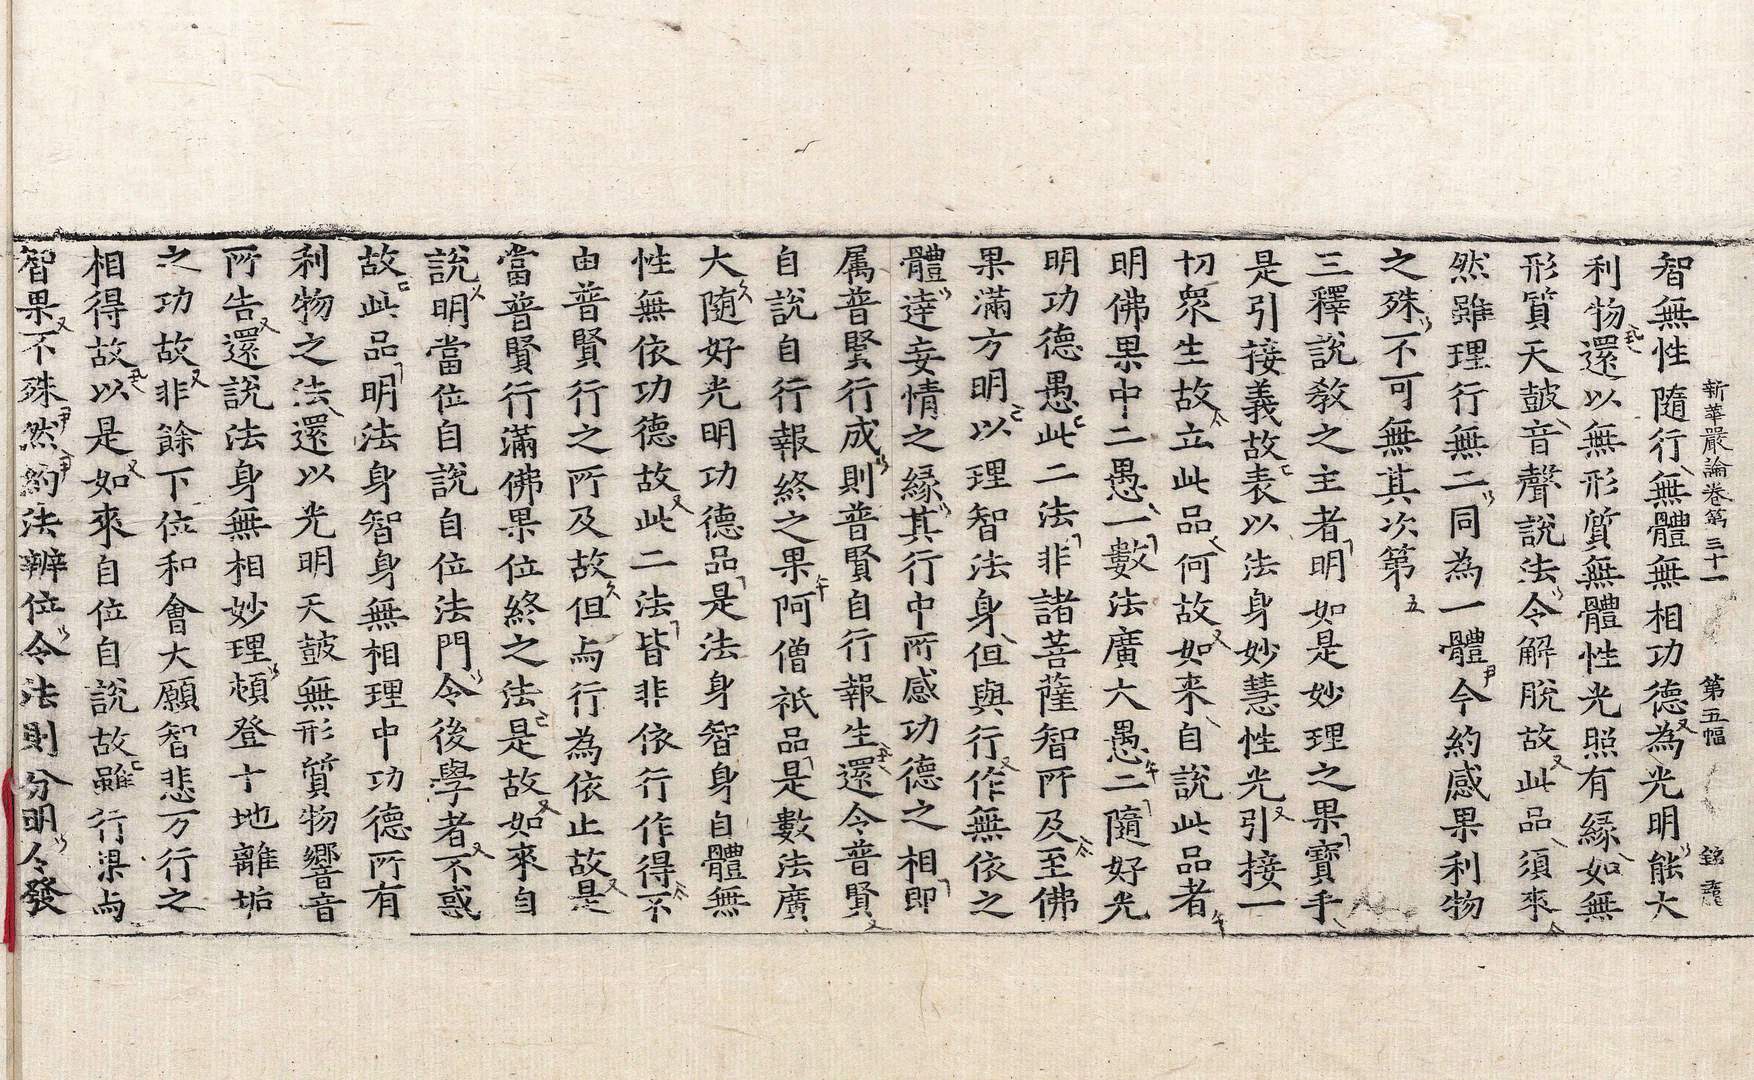 新華嚴論卷第三十一 第五幅
智無性隨行無體無相功德為光明能大
利物還以無形質無體性光照有緣如無
形質天鼓音聲說法令解脫故此品須來
然雖理行無二同為一體今約感果利物
之殊不可無其次第五
三釋說教之主者明如是妙理之果寶手
是引接義故表以法身妙慧性光引接一
切眾生故立此品何故如来自說此品者
明佛果中二愚一數法廣大愚二隨好光
明功德愚此二法非諸菩薩智所及至佛
果滿方明以理智法身但與行作無依之
體達妄情之緣其行中所感功德之相即
属普賢行成則普賢自行報生還令普賢
自說自行報終之果阿僧祇品是數法廣
大随好光明功德品是法身智身自體無
性無依功德故此二法皆非依行作得不
由普賢行之所及故但与行為依止故是
當普賢行滿佛果位終之法是故如來自
說明當位自說自位法門令後學者不惑
故此品明法身智身無相理中功德所有
利物之法還以光明天鼓無形質物響音
所告還說法身無相妙理頓登十地離垢
之功故非餘下位和會大願智悲万行之
相得故以是如來自位自說故雖行果与
智果不殊然約法辨位令法則分明令發